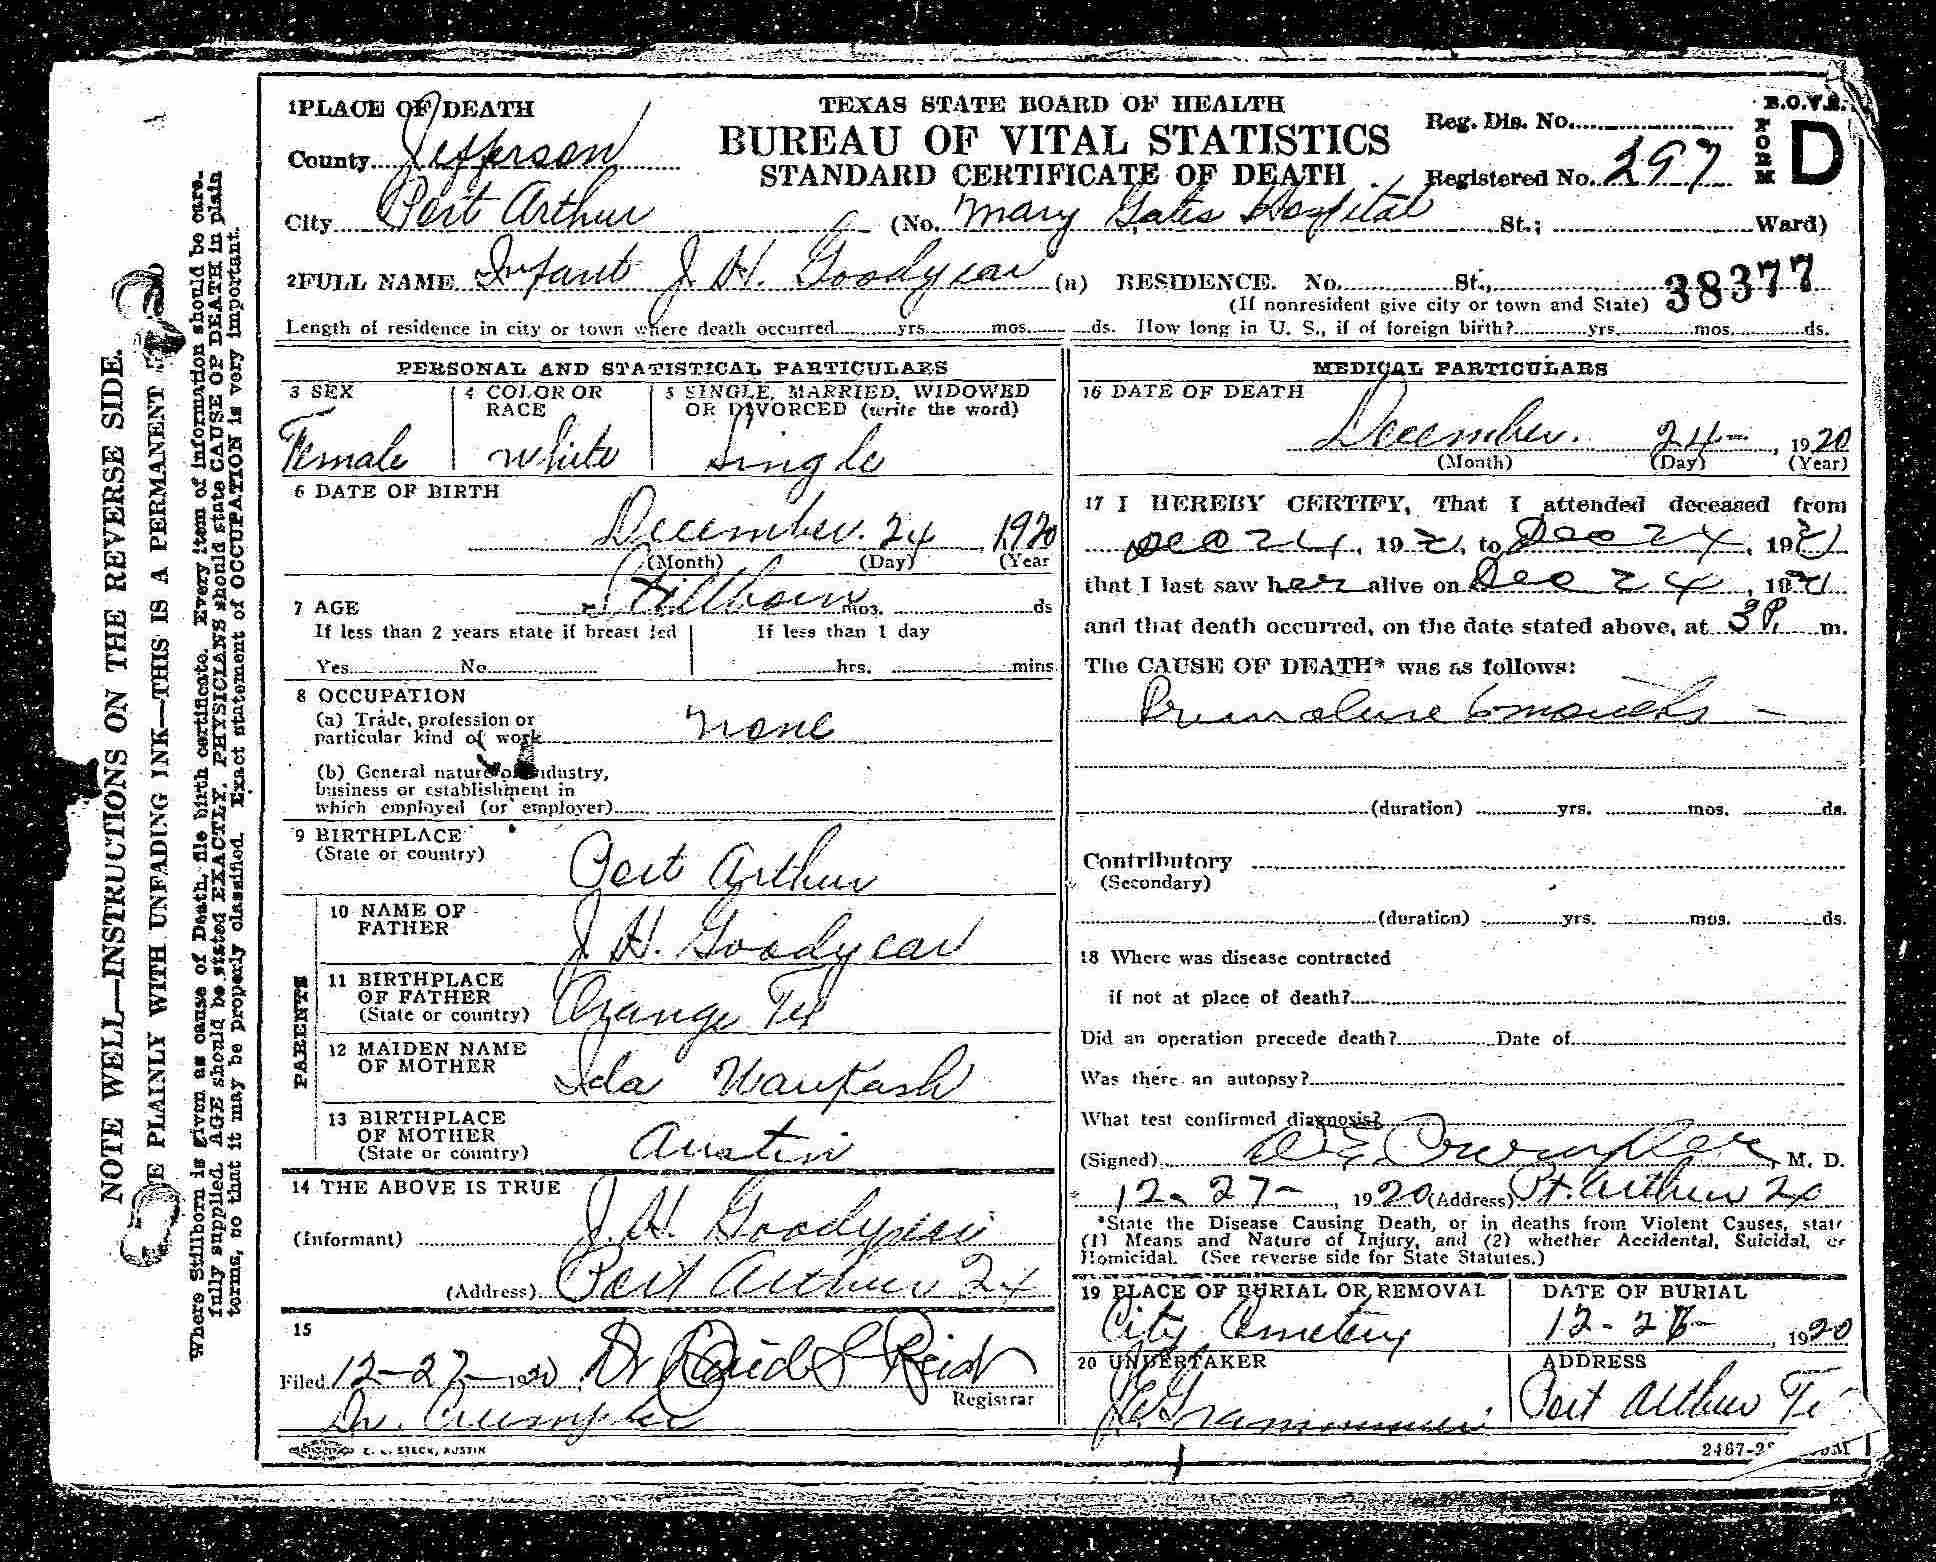 NOTE WELL—INSTRUCTIONS ON THE REVERSE SIDE.
E PLAINLY WITH UNFADING INK—THIS IS A PERMANENT
Where Stillborn is given as cause of Death, file birth certificate. Every item of information should be care-
fully supplied. AGE should be stated EXACTLY. PHYSICIANS should state CAUSE OF DEATH in plain
terms, so that it may be properly classified. Exact statement of OCCUPATION is very important.
1 PLACE OF DEATH
County Jefferson
City Port Arthur
TEXAS STATE BOARD OF HEALTH
BUREAU OF VITAL STATISTICS
STANDARD CERTIFICATE OF DEATH
Reg. Dis. No.
Registered No. 297
B.O.V.S.
FORM D
(No. Mary Gates Hospital St.; Ward)
2 FULL NAME Infant J. H. Goodyear (a) RESIDENCE. No. St., 38377
(If nonresident give city or town and State)
Length of residence in city or town where death occurred yrs. mos. ds. How long in U. S., if of foreign birth? yrs. mos. ds.
PERSONAL AND STATISTICAL PARTICULARS
3 SEX
Female
4 COLOR OR RACE
White
5 SINGLE, MARRIED, WIDOWED
OR DIVORCED (write the word)
Single
6 DATE OF BIRTH
December. 24 1920
(Month) (Day) (Year
7 AGE Stillborn mos. ds
If less than 2 years state if breast fed
Yes No
If less than 1 day
hrs. mins
8 OCCUPATION
(a) Trade, profession or
particular kind of work none
(b) General nature of industry,
business or establishment in
which employed (or employer)
9 BIRTHPLACE
(State or country) Port Arthur
PARENTS
10 NAME OF
FATHER J. H. Goodyear
11 BIRTHPLACE
OF FATHER
(State or country) Orange Tex
12 MAIDEN NAME
OF MOTHER Ida
13 BIRTHPLACE
OF MOTHER
(State or country) Austin
14 THE ABOVE IS TRUE
(Informant) J. H. Goodyear
(Address) Port Arthur
15
Filed 12-27- 1920 Dr David S Reid
Registrar
Dr. Crumpler
E. L. STECK, AUSTIN
MEDICAL PARTICULARS
16 DATE OF DEATH
December. 24- , 1920
(Month) (Day) (Year)
17 I HEREBY CERTIFY, That I attended deceased from
Dec 24, 19 , to Dec 24, 19
that I last saw her alive on Dec 24, 19
and that death occurred, on the date stated above, at 3 P. m.
The CAUSE OF DEATH* was as follows:
Premature 6 months -
(duration) yrs. mos. ds.
Contributory
(Secondary)
(duration) yrs. mos. ds.
18 Where was disease contracted
if not at place of death?
Did an operation precede death? Date of
Was there an autopsy?
What test confirmed diagnosis?
(Signed) Crumpler, M. D.
12-27-, 1920 (Address) Pt. Arthur
*State the Disease Causing Death, or in deaths from Violent Causes, state
(1) Means and Nature of Injury, and (2) whether Accidental, Suicidal, or
Homicidal. (See reverse side for State Statutes.)
19 PLACE OF BURIAL OR REMOVAL
City Cemetery
DATE OF BURIAL
12- , 1920
20 UNDERTAKER
ADDRESS
Port Arthur